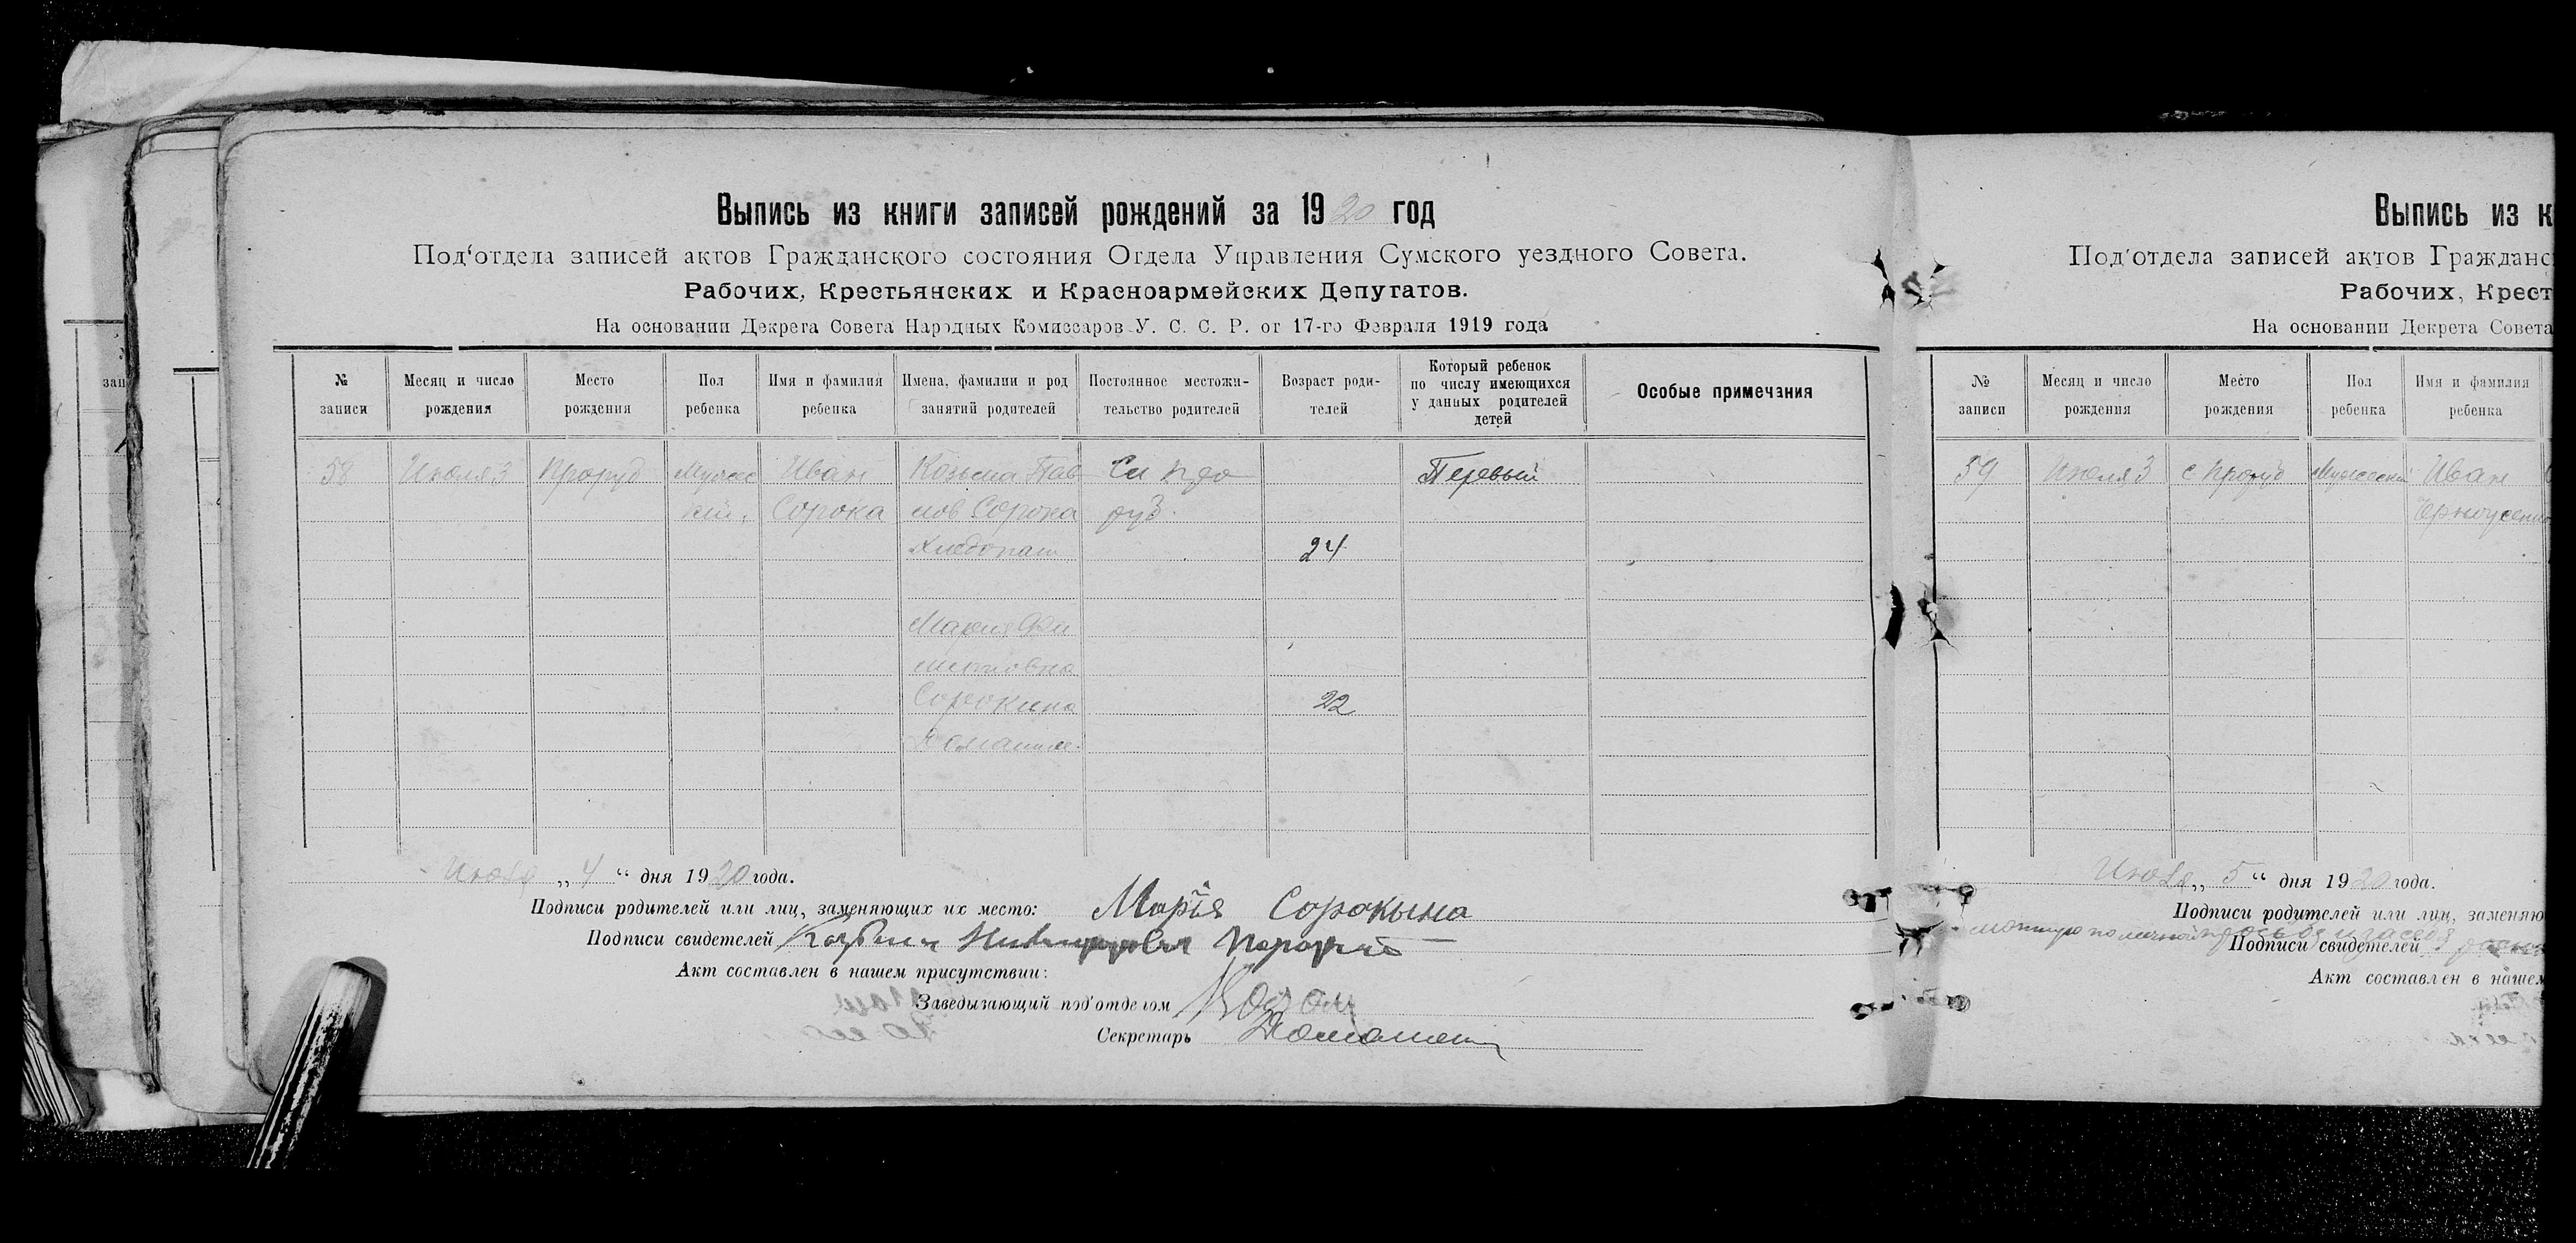 Выпись из книги записей рождений за 1920 год
Под'отдела записей актов Гражданского состояния Отдела Управления Сумского уездного Совета.
Рабочих, Крестьянских и Красноармейских Депутатов.
На основании Декрета Совета Народных Комиссаров У. С. С. Р. от 17-го Февраля 1919 года
№ записи
Месяц и число рождения
Место рождения
Пол ребенка
Имя и фамилия ребенка
Имена, фамилии и род занятий родителей
Постоянное местожительство родителей
Возраст родителей
Который ребенок по числу имеющихся у данных родителей детей
Особые примечания
58
Июля 3
Проруб
Мужес
кий
Иван
Сорока
Козьма Пав
лов Сорока
Хлебопаш
Мария Фи
Сорокина
Домашн
Сл Про
руб.
24
22
Первый
Июля „4" дня 1920 года.
Подписи родителей или лиц, заменяющих их место: Марія Сорокына
Подписи свидетелей
Акт составлен в нашем присутствии:
Заведывающий под'отделом
Секретарь
Выпись из к
Под'отдела записей актов Гражданс
Рабочих, Крест
На основании Декрета Совета
№ записи
Месяц и число рождения
Место рождения
Пол ребенка
Имя и фамилия ребенка
59
Июля 3
с Проруб
Мужеский
Иван
Июля „5" дня 1920 года.
Подписи родителей или лиц, заменяю
Подписи свидетелей
Акт составлен в нашем